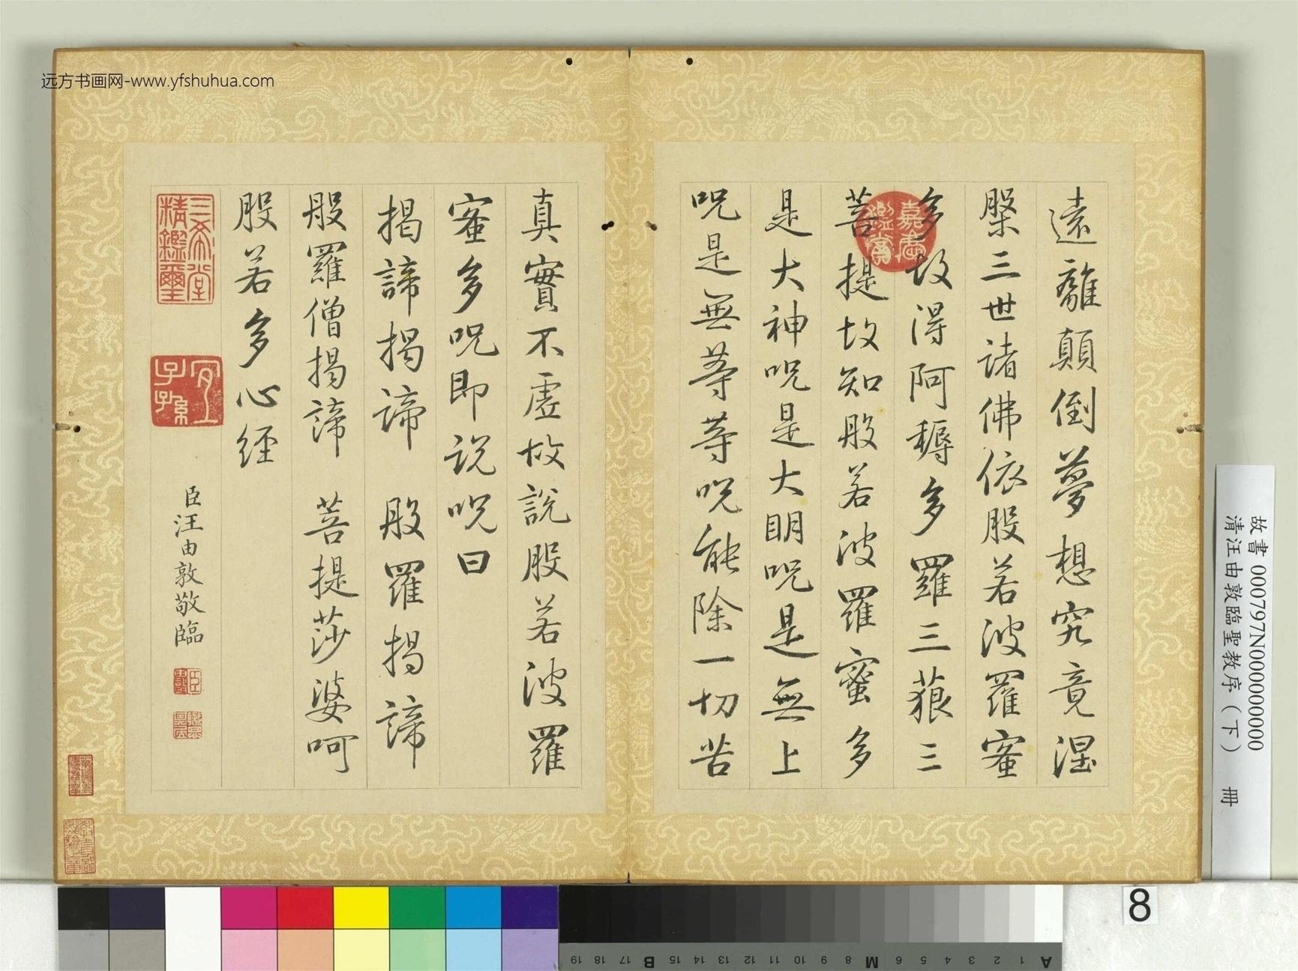 远方书画网-www.yfshuhua.com
遠離顛倒夢想究竟涅
槃三世諸佛依般若波羅蜜
多故得阿耨多羅三藐三
菩提故知般若波羅蜜多
是大神呪是大明呪是無上
呪是無等等呪能除一切苦
真實不虛故說般若波羅
蜜多呪即說呪曰
揭諦揭諦 般羅揭諦
般羅僧揭諦 菩提莎婆呵
般若多心經
臣汪由敦敬臨
嘉慶鑑賞
三希堂精鑑璽
宜子孫
故書 000797N000000000
清汪由敦臨聖教序(下) 冊
8
A 1 2 3 4 5 6 M 8 9 10 11 12 13 14 15 B 17 18 19